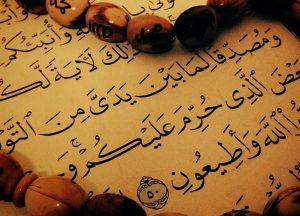 وَأُنَبِّئُكُم
ذَٰلِكَ لَآيَةً لَّكُ
وَمُصَدِّقًا لِّمَا بَيْنَ يَدَيَّ مِنَ التَّوْ
عْضَ الَّذِي حُرِّمَ عَلَيْكُمْ وَ
اللَّهَ وَأَطِيعُونِ ٥٠